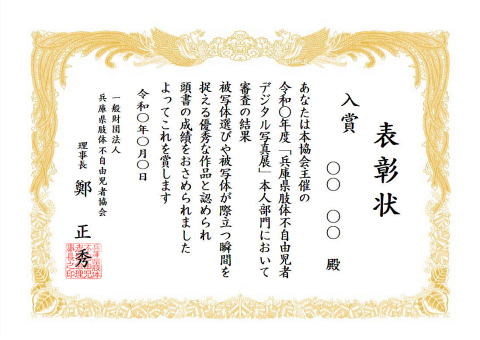 表彰状
入賞
〇〇 〇〇 殿
あなたは本協会主催の
令和〇年度「兵庫県肢体不自由児者
デジタル写真展」本人部門において
審査の結果
被写体選びや被写体が際立つ瞬間を
捉える優秀な作品と認められ
頭書の成績をおさめられました
よってこれを賞します
令和〇年〇月〇日
一般財団法人
兵庫県肢体不自由児者協会
理事長 鄭 正秀